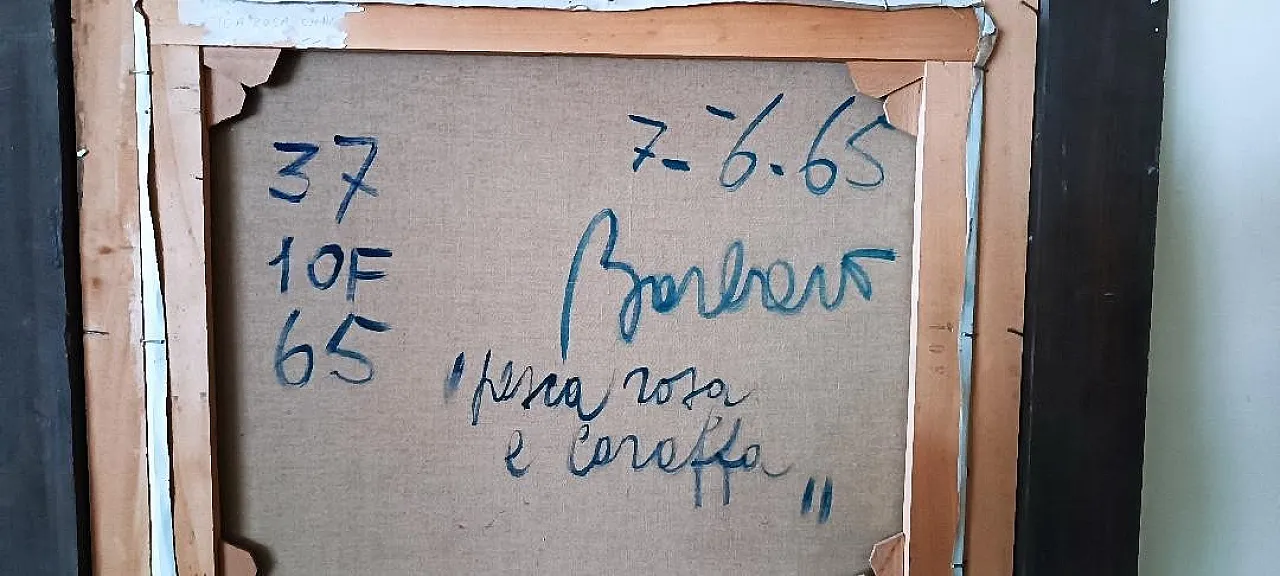 37
7-6.65
10F
Barbaro
65
"pesca rosa
e caraffa"